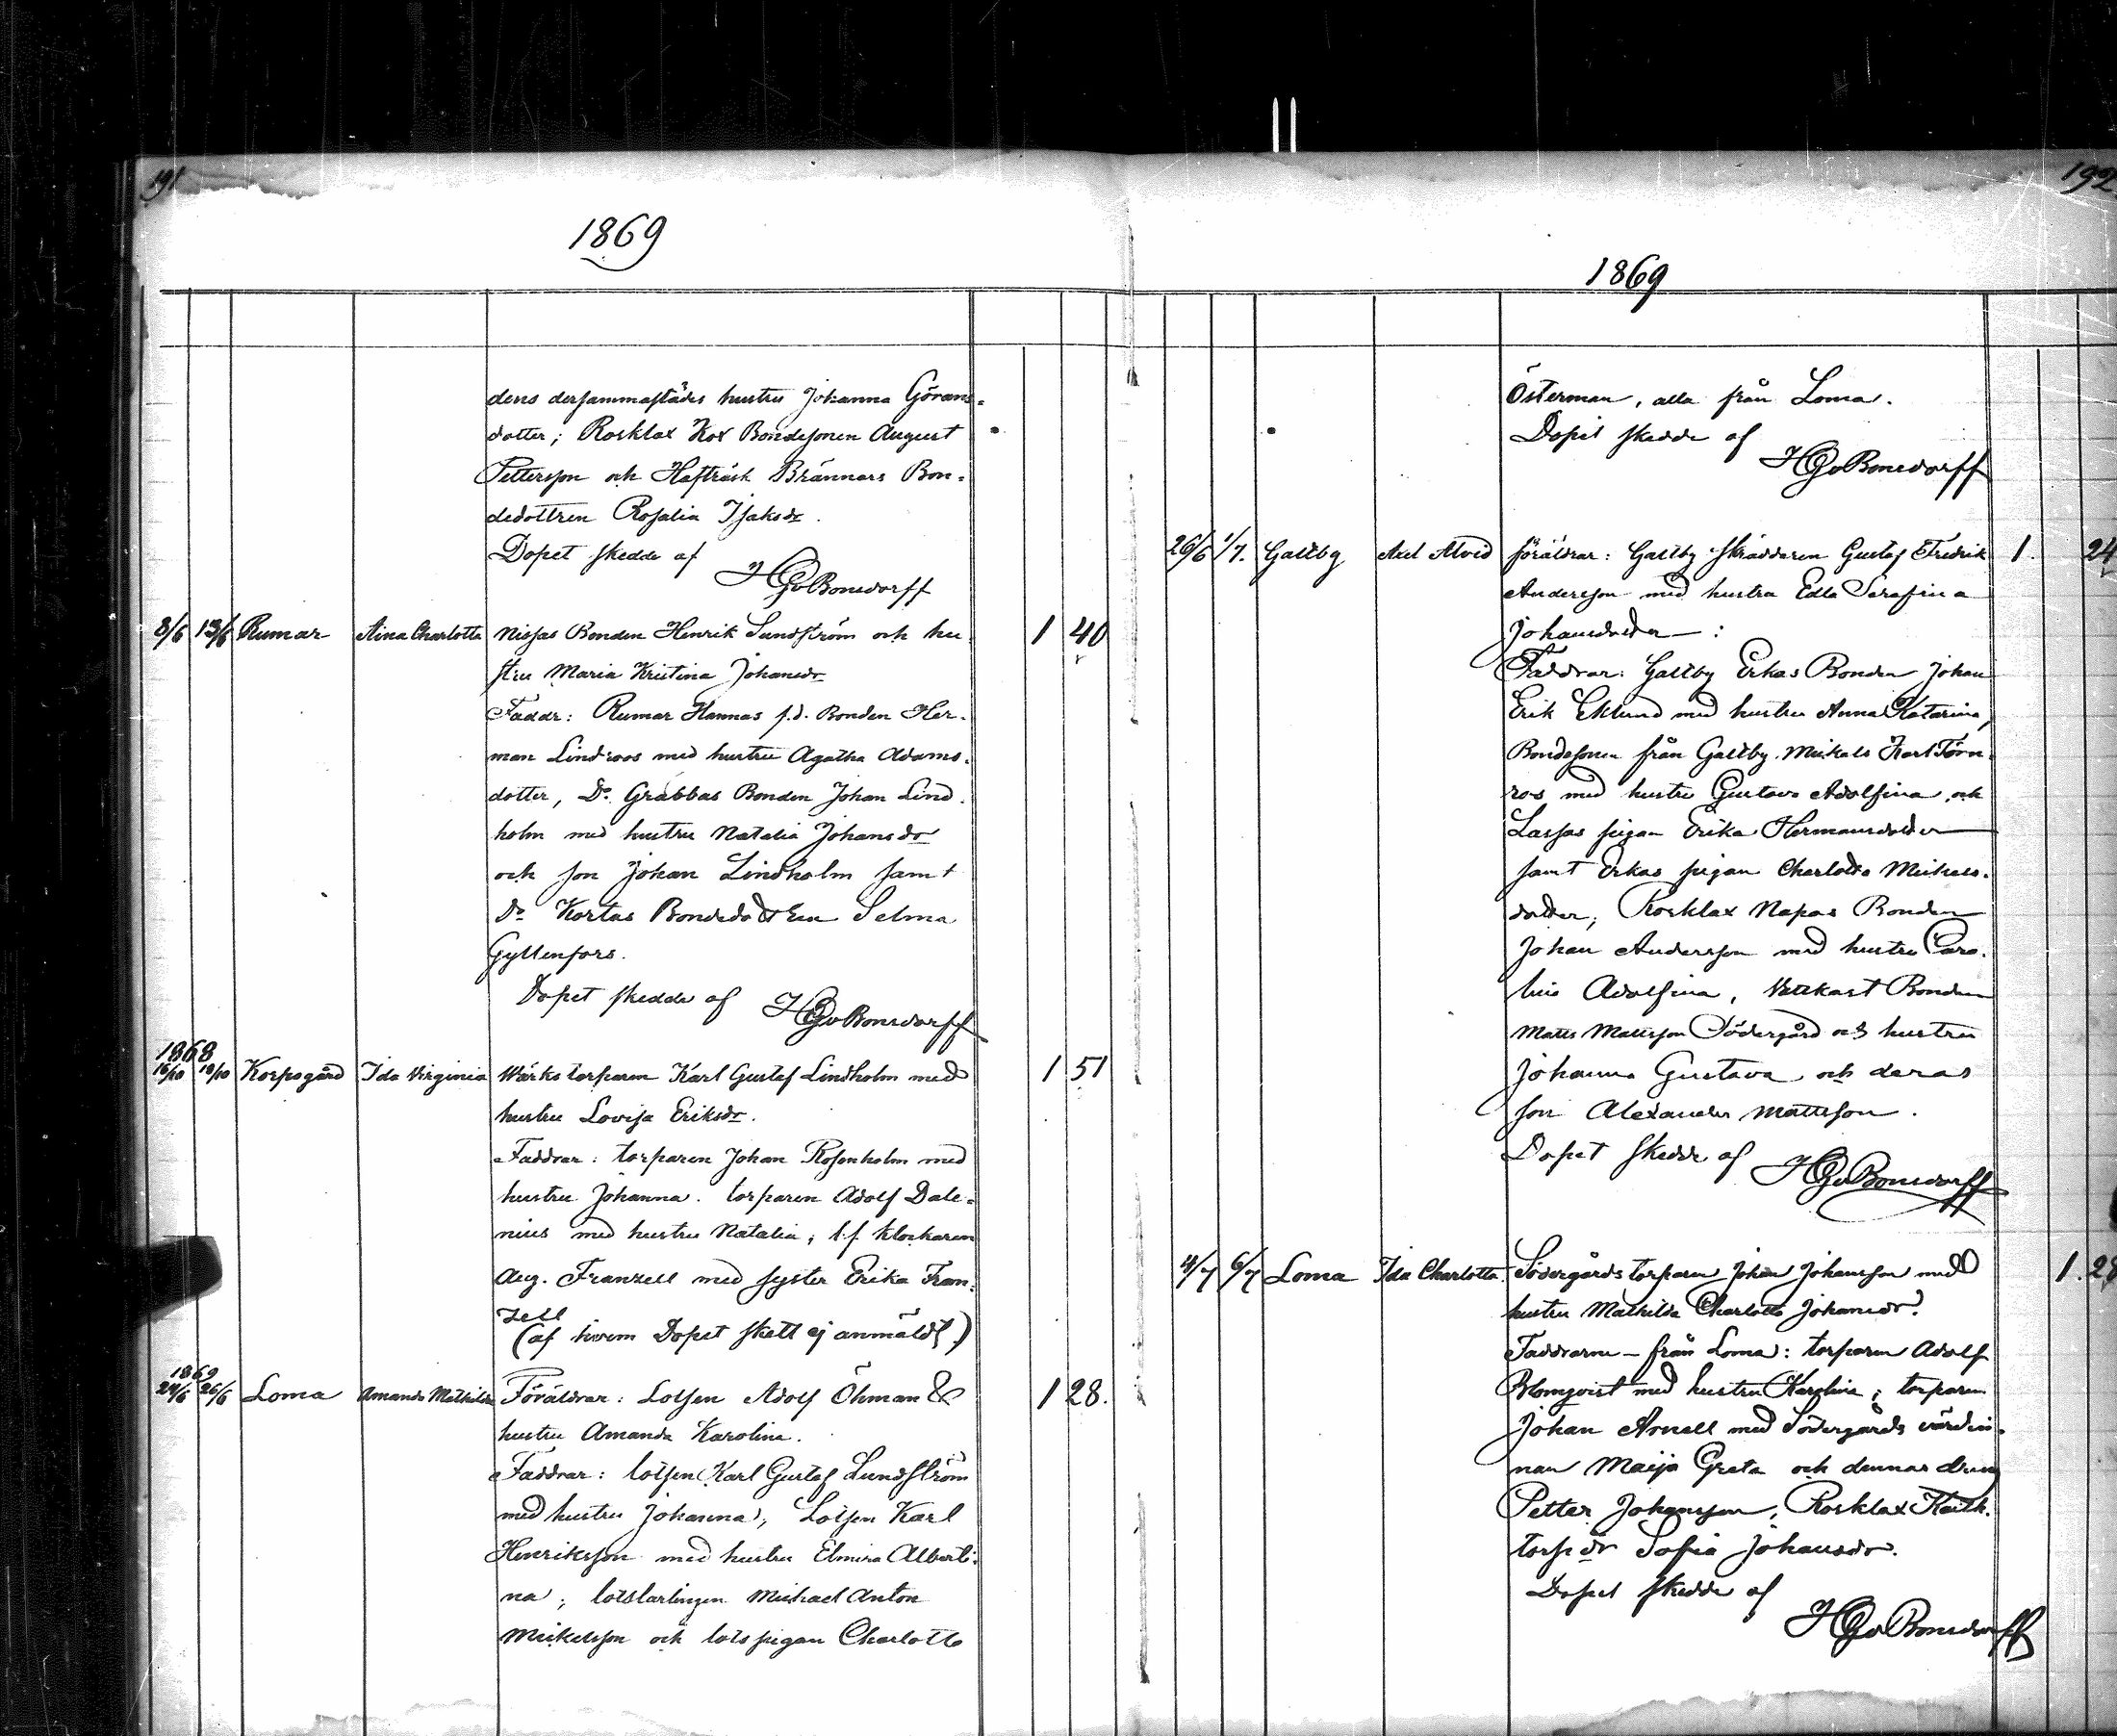 191
1869
dens dersammastädes hustru Johanna Görans-
dotter; Rosklax Kox Bondesonen August
Pettersson och Hafträsk Brännars Bon-
dedottren Rosalia Isaksdr.
Dopet skedde af
HGvBonsdorff
8/6 13/6 Rumar Aina Charlotta Nissas Bonden Henrik Sundström och hu- 1 40
stru Maria Kristina Johansdr
Faddr: Rumar Hannas f.d. Bonden Her-
man Lindroos med hustru Agatha Adams-
dotter, Do Grabbas Bonden Johan Lind-
holm med hustru Natalia Johansdr
och son Johan Lindholm samt
Do Kortas Bondedottren Selma
Gyllenfors.
Dopet skedde af
HGvBonsdorff
1868
16/10 18/10 Korpogård Ida Virginia Wärkstorparen Karl Gustaf Lindholm med 1 51
hustru Lovisa Eriksdr.
Faddrar: torparen Johan Rosenholm med
hustru Johanna. torparen Adolf Dale-
nius med hustru Natalia; t.f klockaren
Aug. Franzell med syster Erika Fran-
zell
(af hvem Dopet skett ej anmäldt)
1869
24/6 26/6 Loma Amanda Mathilda Föräldrar: Lotsen Adolf Öhman & 1 28.
hustru Amanda Karolina.
Faddrar: lotsen Karl Gustaf Lundström
med hustru Johanna; Lotsen Karl
Henriksson med hustru Elmira Alberti-
na; lotslärlingen Michael Anton
Mickelsson och lotspigan Charlotta
192
1869
Österman, alla från Loma.
Dopet skedde af
HGvBonsdorff
26/6 1/7. Galtby Axel Alvid föräldrar: Galtby Skräddaren Gustaf Fredrik 1. 24
Andersson med hustru Edla Serafina
Johansdotter —:
Faddrar: Galtby Erkas Bonden Johan
Erik Eklund med hustru Anna Katarina,
Bondesonen från Galtby Mickels Karl Törn-
ros med hustru Gustava Adolfina och
Lassas pigan Erika Hermansdotter
samt Erkas pigan Charlotta Mickels-
dotter; Rosklax Napas Bonden
Johan Andersson med hustru Caro-
lina Adolfina, Vattkast Bonden
Matts Mattsson Södergård och hustru
Johanna Gustava och deras
son Alexander Mattsson.
Dopet skedde af
HGvBonsdorff
4/7 6/7 Loma Ida Charlotta Södergårds torparen Johan Johansson med 1. 28
hustru Mathilda Charlotta Johansdr.
Faddrarne — från Loma: torparen Adolf
Blomqvist med hustru Karolina; torparen
Johan Arnell med Södergårds värdin-
nan Maija Greta och dennas dräng
Petter Johansson, Rosklax
torp dr Sofia Johansdr.
Dopet skedde af
HGvBonsdorff